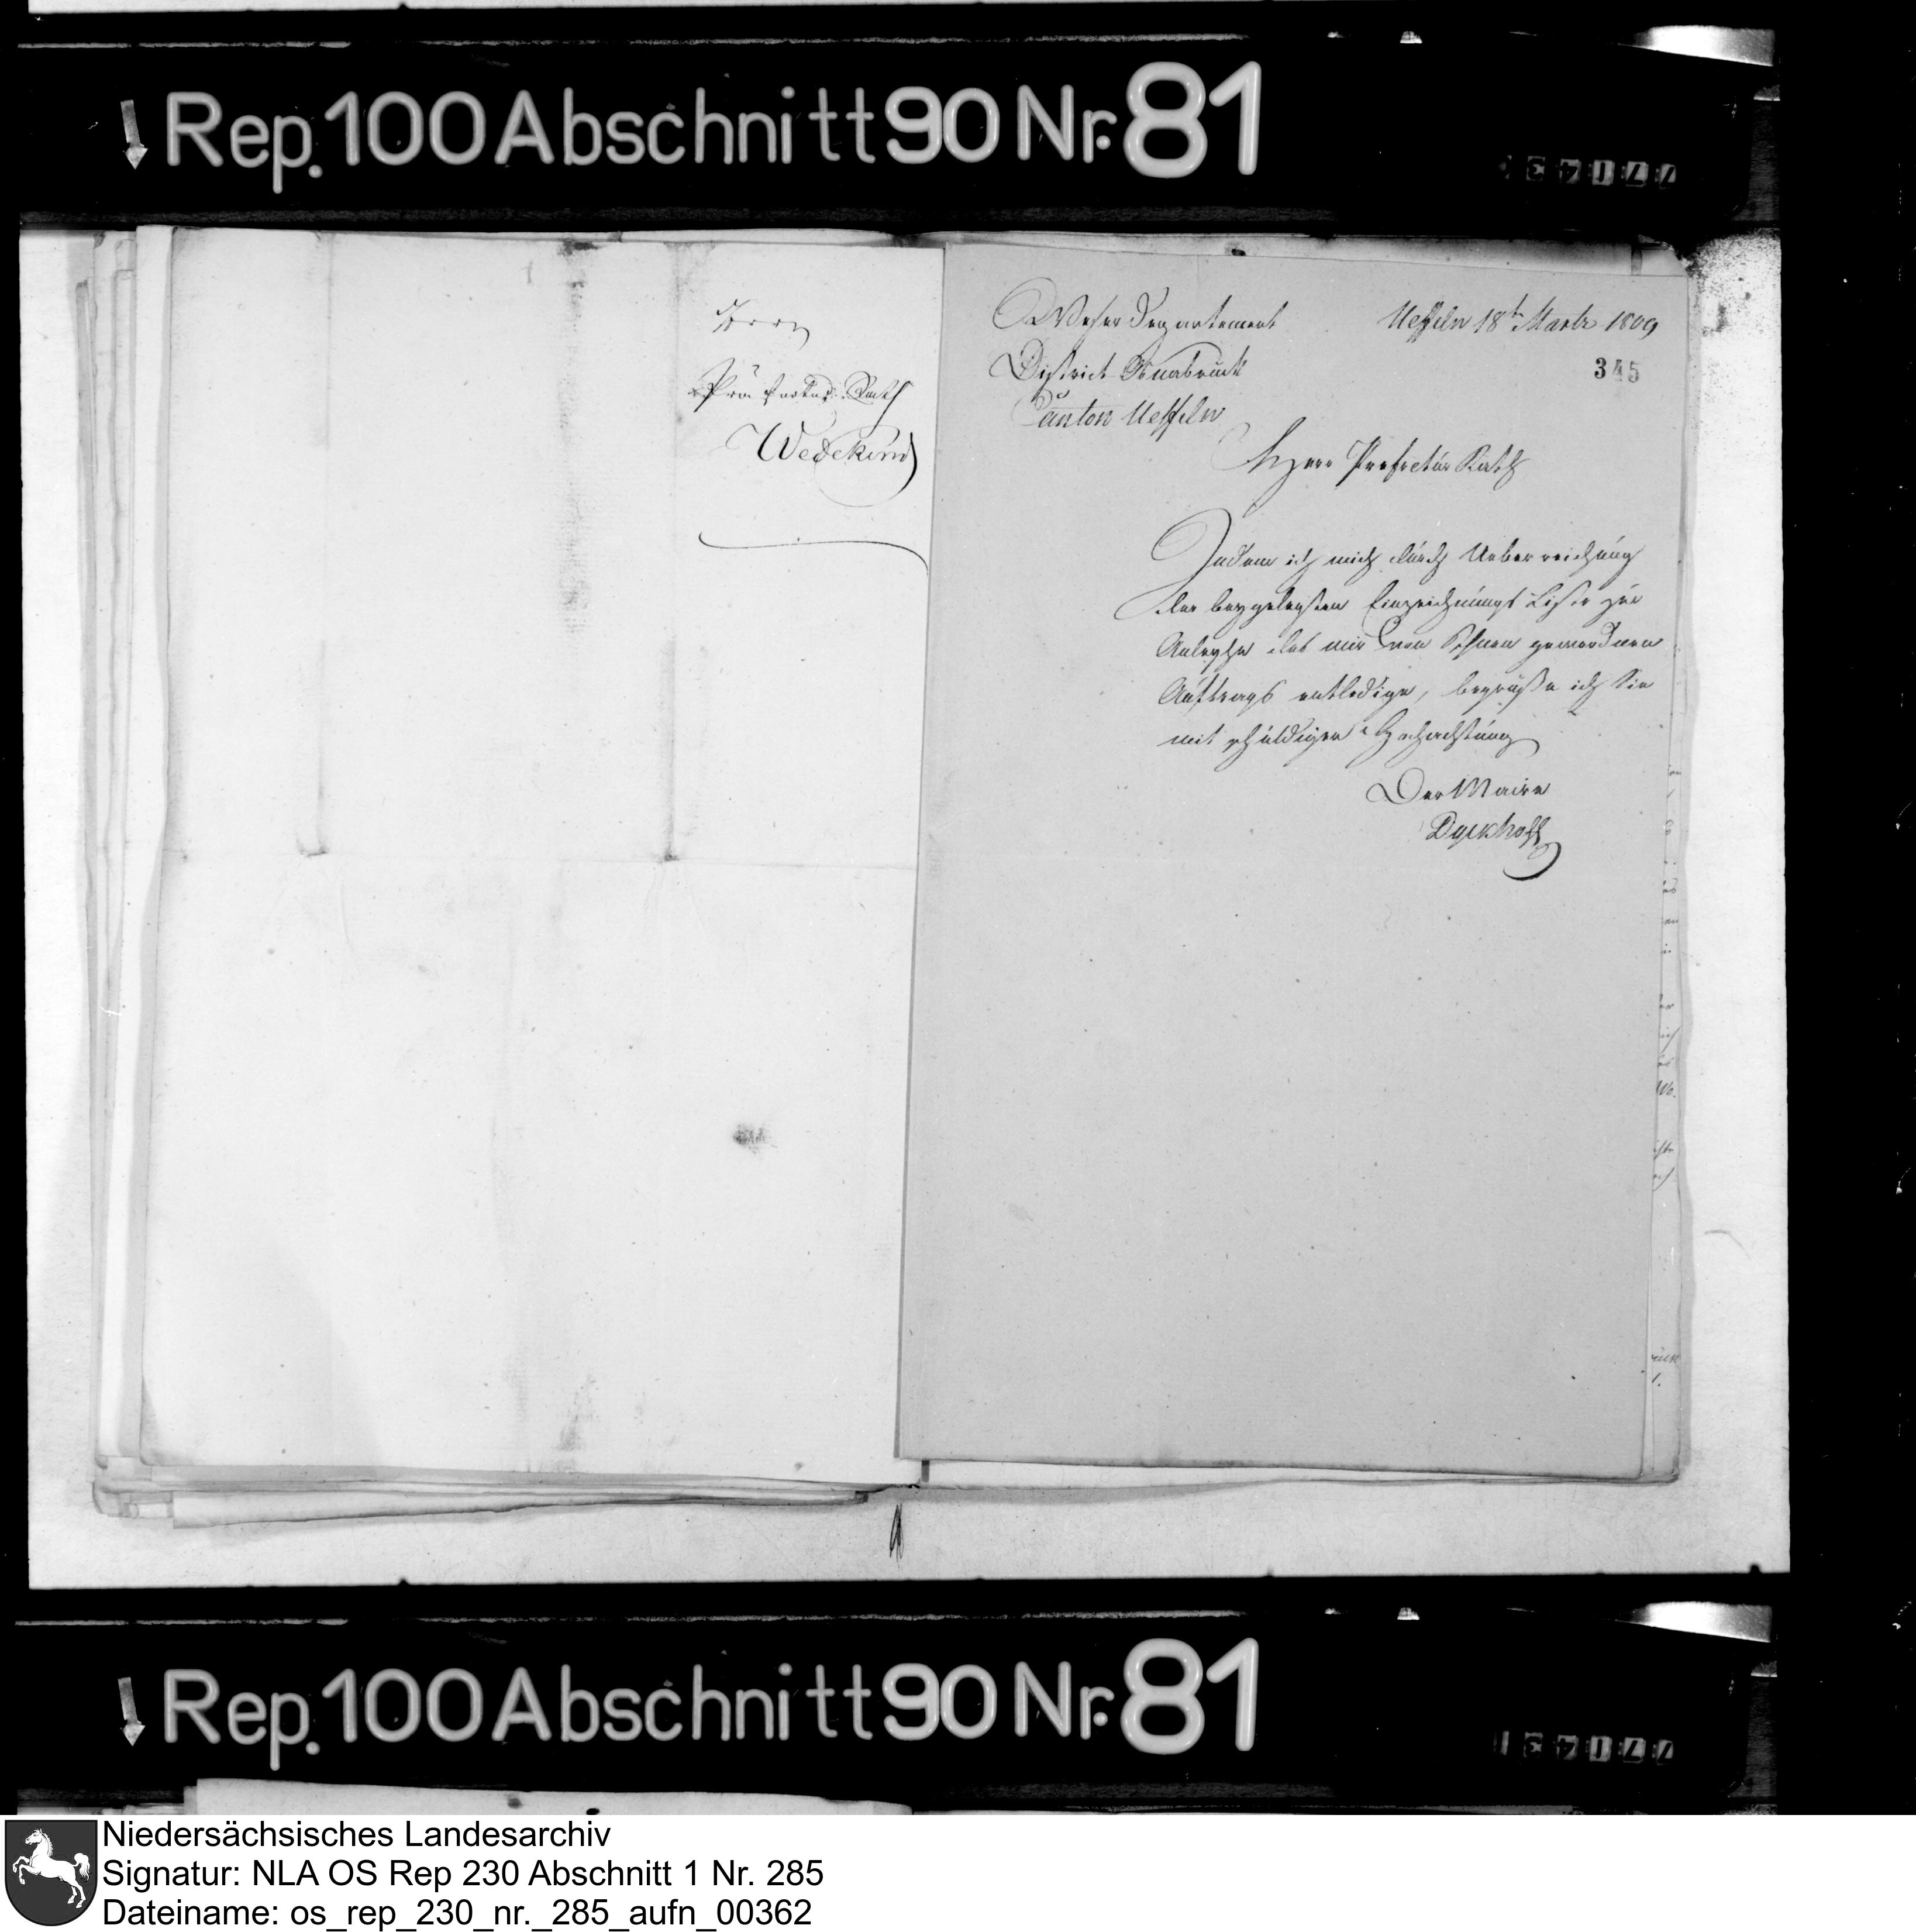 Rep. 100 Abschnitt 90 Nr. 81
Herrn
Präfectur. Rath
Wedekind
Weser Departement
District Osnabrück
Canton Ueffeln
Ueffeln 18t Martz 1809
345
Herr Prefectúr Rath
Indem ich mich dúrch Ueberreichúng
der beygelegten Einzeichnúngs Liste zúr
Anleyhe des mir von Ihnen gewordnen
Aúftrags entledige, begrüße ich Sie
mit schúldiger Hochachtúng
Der Maire
Dyckhoff
Rep. 100 Abschnitt 90 Nr. 81
Niedersächsisches Landesarchiv
Signatur: NLA OS Rep 230 Abschnitt 1 Nr. 285
Dateiname: os_rep_230_nr._285_aufn_00362